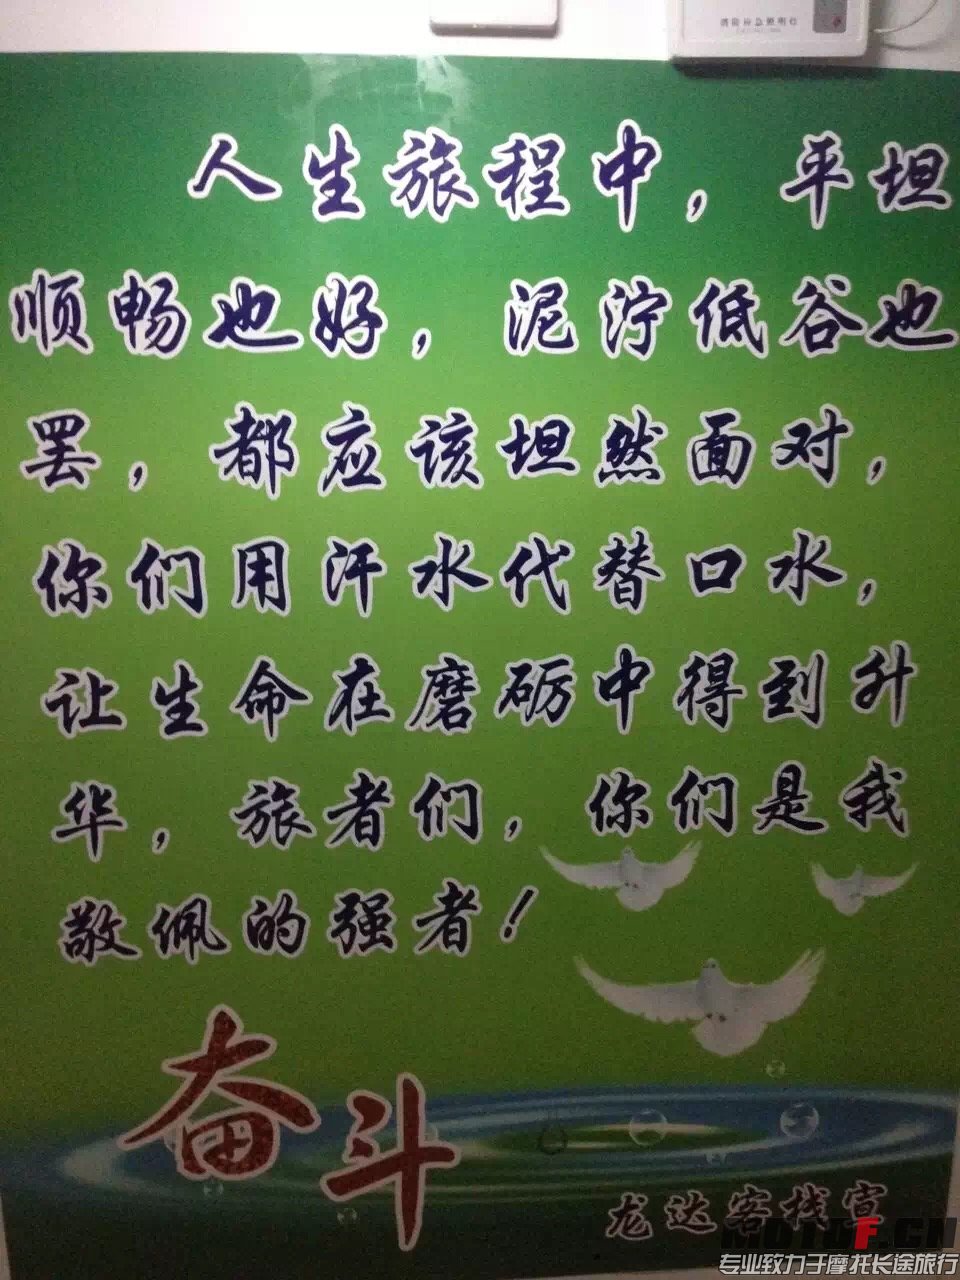 消防应急照明灯
人生旅程中，平坦
顺畅也好，泥泞低谷也
罢，都应该坦然面对，
你们用汗水代替口水，
让生命在磨砺中得到升
华，旅者们，你们是我
敬佩的强者！
奋斗
龙达客栈宣
MOTOF.CN
专业致力于摩托长途旅行